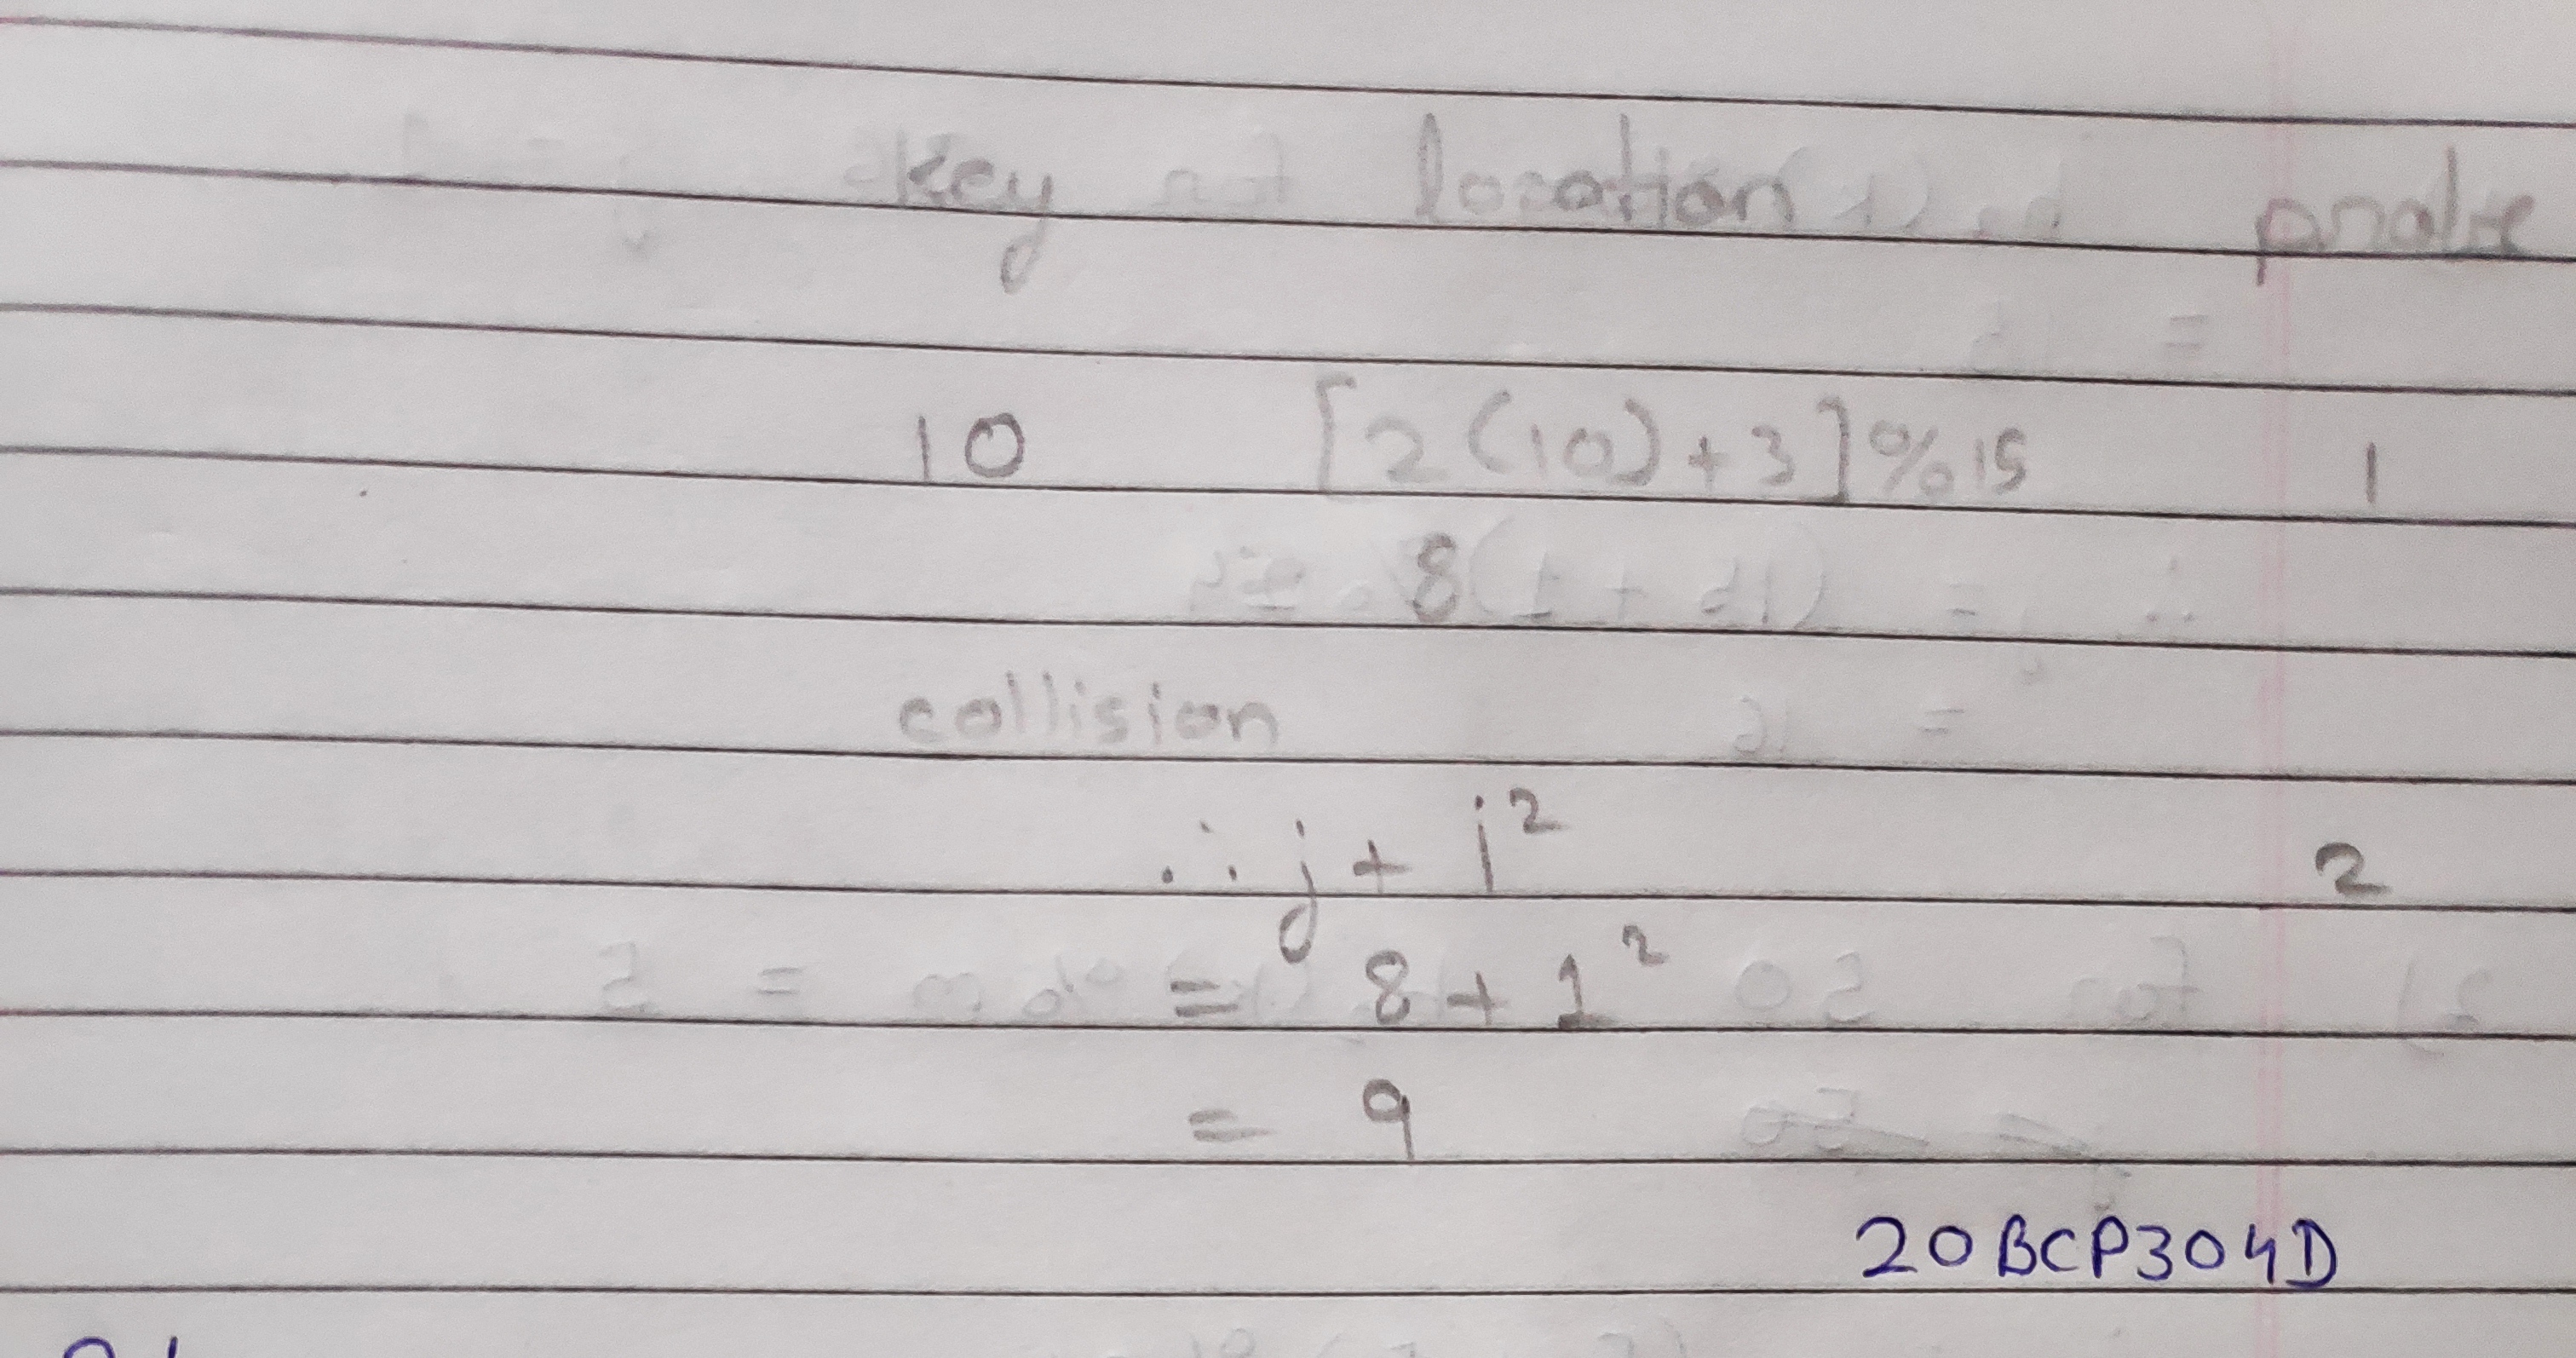 key location probe
10 [2(10)+3]%15 1
8
collision
∴ j + i² 2
= 8 + 1²
= 9
20BCP304D